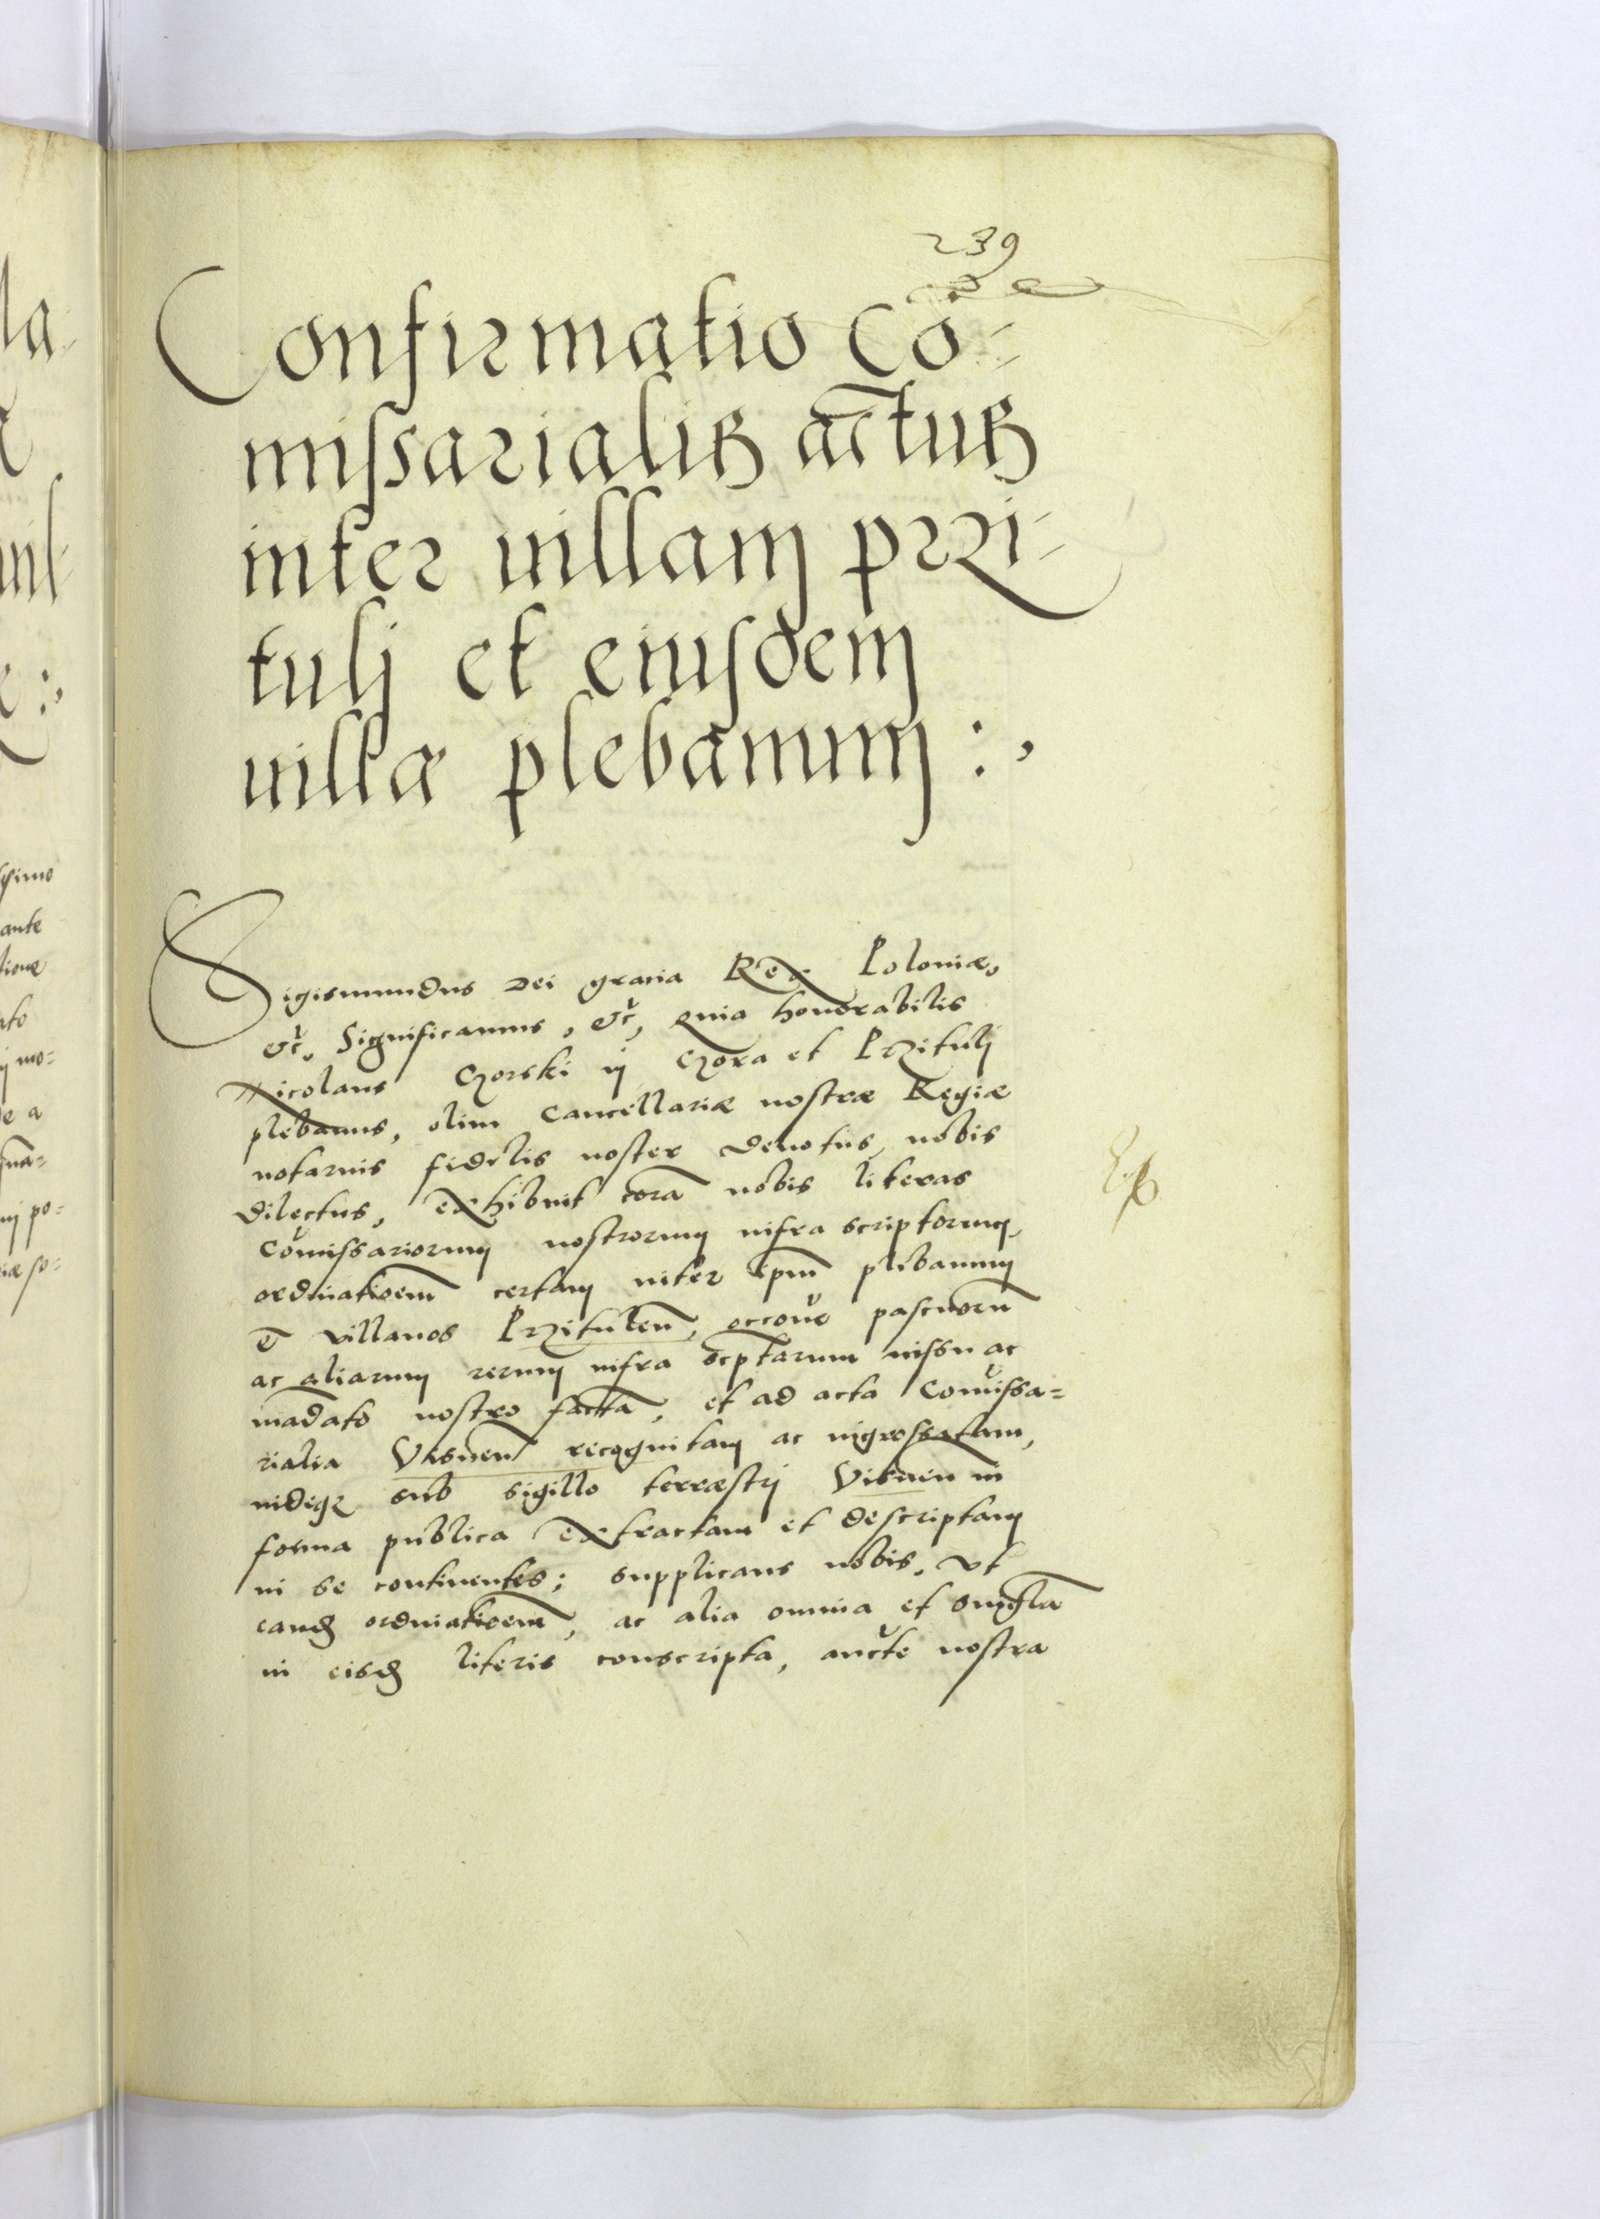 239
Confirmatio Cō-
missarialis actus
inter uillam przi-
tulj et eiusdem
uillæ plebanum :,
Sigismundus Dei gratia Rex Poloniæ,
&c̃. Significamus, &c̃, quia honorabilis
Nicolaus Czorski in Czora et Przitulj
plebanus, olim Cancellariæ nostræ Regiæ
notarius fidelis noster deuotus, nobis
dilectus, exhibuit corã nobis literas
Com̃issariorum nostrorum infra scriptorum,
ordinatioem̃ certam inter ip̃m plebanum
Et villanos Przituleñ, occõne pascuorũ
ac aliarum rerum infra scp̃tarum iussu ac
mãdato nostro factã, et ad acta Com̃issa=
rialia Visneñ recognitam ac ingrossatam,
indeq̃ sub sigillo terræstrj Visneñ in
forma publica extractam et descriptam
in se continentes; supplicans nobis, vt
eand̃ ordinatioem̃, ac alia omnia et singl̃a
in eisd̃ literis conscripta, auctẽ nostra